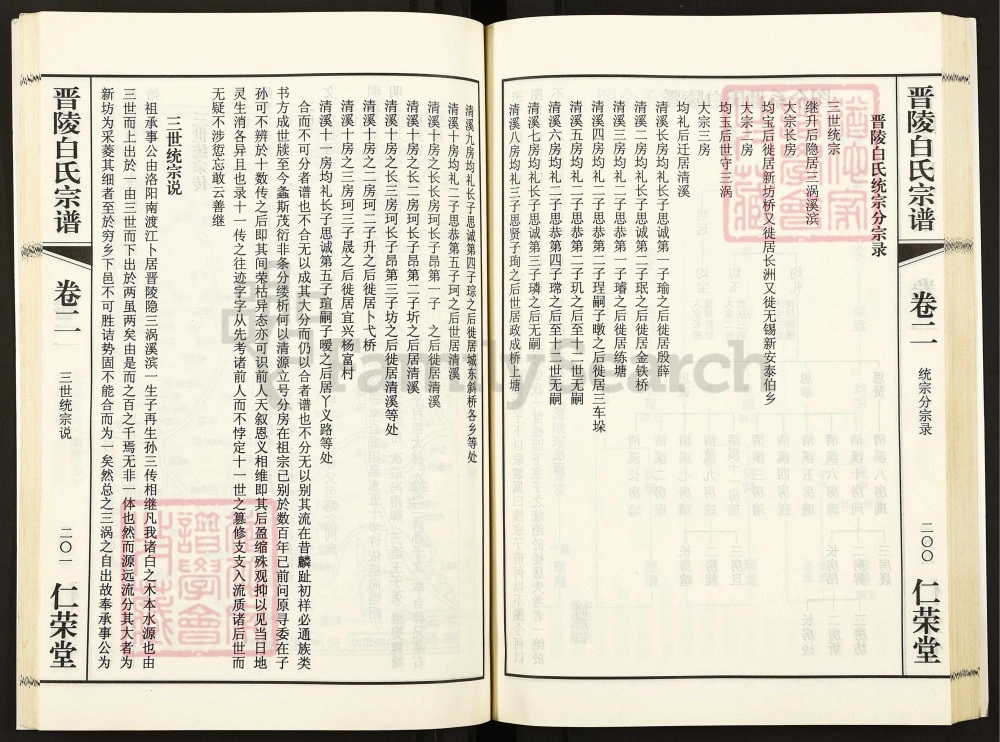 晋陵白氏宗谱
卷二
统宗分宗录
二〇〇
仁荣堂
晋陵白氏统宗分宗录
三世统宗
继升后隐居三涡溪滨
大宗长房
均宝后徙居新坊桥又徙居长洲又徙无锡新安泰伯乡
大宗二房
均玉后世守三涡
大宗三房
均礼后迁居清溪
清溪长房均礼长子思诚第一子瑜之后徙居殷薛
清溪二房均礼长子思诚第二子珉之后徙居金铁桥
清溪三房均礼二子思恭第一子璿之后徙居练塘
清溪四房均礼二子思恭第二子珵嗣子暾之后徙居三车垛
清溪五房均礼二子思恭第二子玑之后至十二世无嗣
清溪六房均礼二子思恭第四子瑺之后至十三世无嗣
清溪七房均礼长子思诚第三子璘之后无嗣
清溪八房均礼三子思贤子珣之后世居政成桥上塘
清溪九房均礼长子思诚第四子琮之后徙居城东斜桥各乡等处
清溪十房均礼二子思恭第五子珂之后世居清溪
清溪十房之长长房珂长子昂第一子 之后徙居清溪
清溪十房之长二房珂长子昂第二子圻之后居清溪
清溪十房之长三房珂长子昂第三子坊之后徙居清溪等处
清溪十房之二房珂二子升之后徙居卜弋桥
清溪十房之三房珂三子晟之后徙居宜兴杨富村
清溪十一房均礼长子思诚第五子瑄嗣子暧之后居丫义路等处
合而不可分者谱也不合无以成其大分而仍以合者谱也不分无以别其流在昔麟趾初祥必通族类
书方成世牍至今螽斯茂衍非条分缕析何以清源立号分房在祖宗已别於数百年已前问原寻委在子
孙可不辨於十数传之后即其间荣枯异态亦可识前人天叙恩义相维即其后盈缩殊观抑以见当日地
灵生消各异且也录十一传之往迹字字从先考诸前人而不悖定十一世之篡修支支入流质诸后世而
无疑不涉愆忘敢云善继
三世统宗说
祖承事公由洛阳南渡江卜居晋陵隐三涡溪滨一生子再生孙三传相继凡我诸白之木本水源也由
三世而上出於一由三世而下出於两虽两矣由是而之百之千焉无非一体也然而源远流分其大者为
新坊为采菱其细者至於穷乡下邑不可胜诘势固不能合而为一矣然总之三涡之自出故奉承事公为
晋陵白氏宗谱
卷二
三世统宗说
二〇一
仁荣堂
FamilySearch